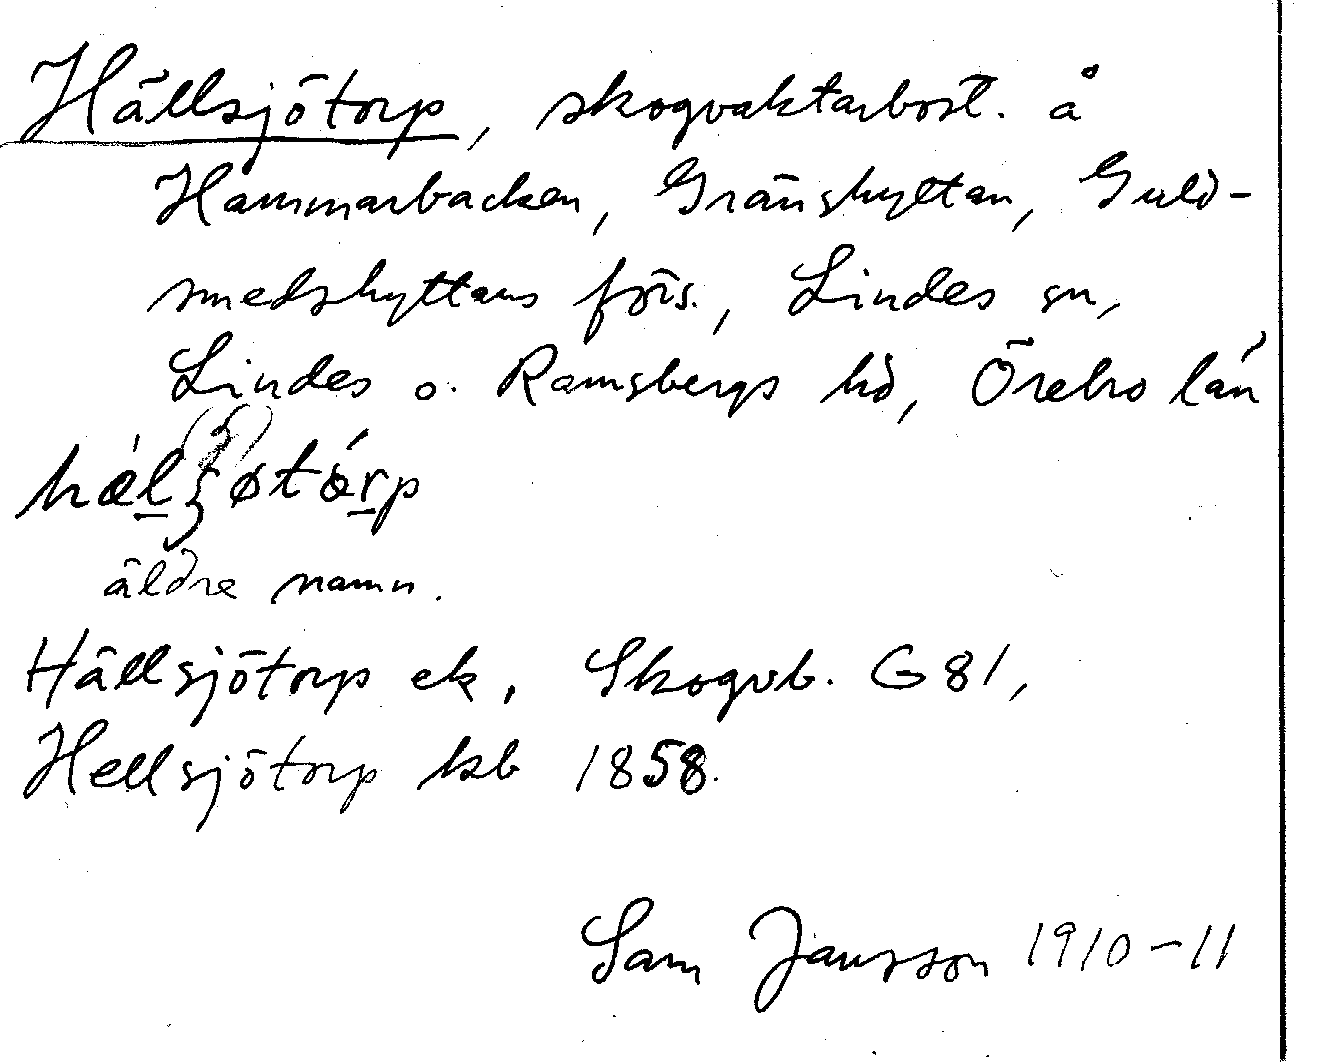 Hällsjötorp, skogvaktarbost. å
Hammarbacken, Gränshyttan, Guld-
smedshyttans förs., Lindes sn,
Lindes o. Ramsbergs hd, Örebro län
äldre namn.
Hällsjötorp ek, Skogvb. G 81,
Hellsjötorp kb 1858.
Sam Jansson 1910-11